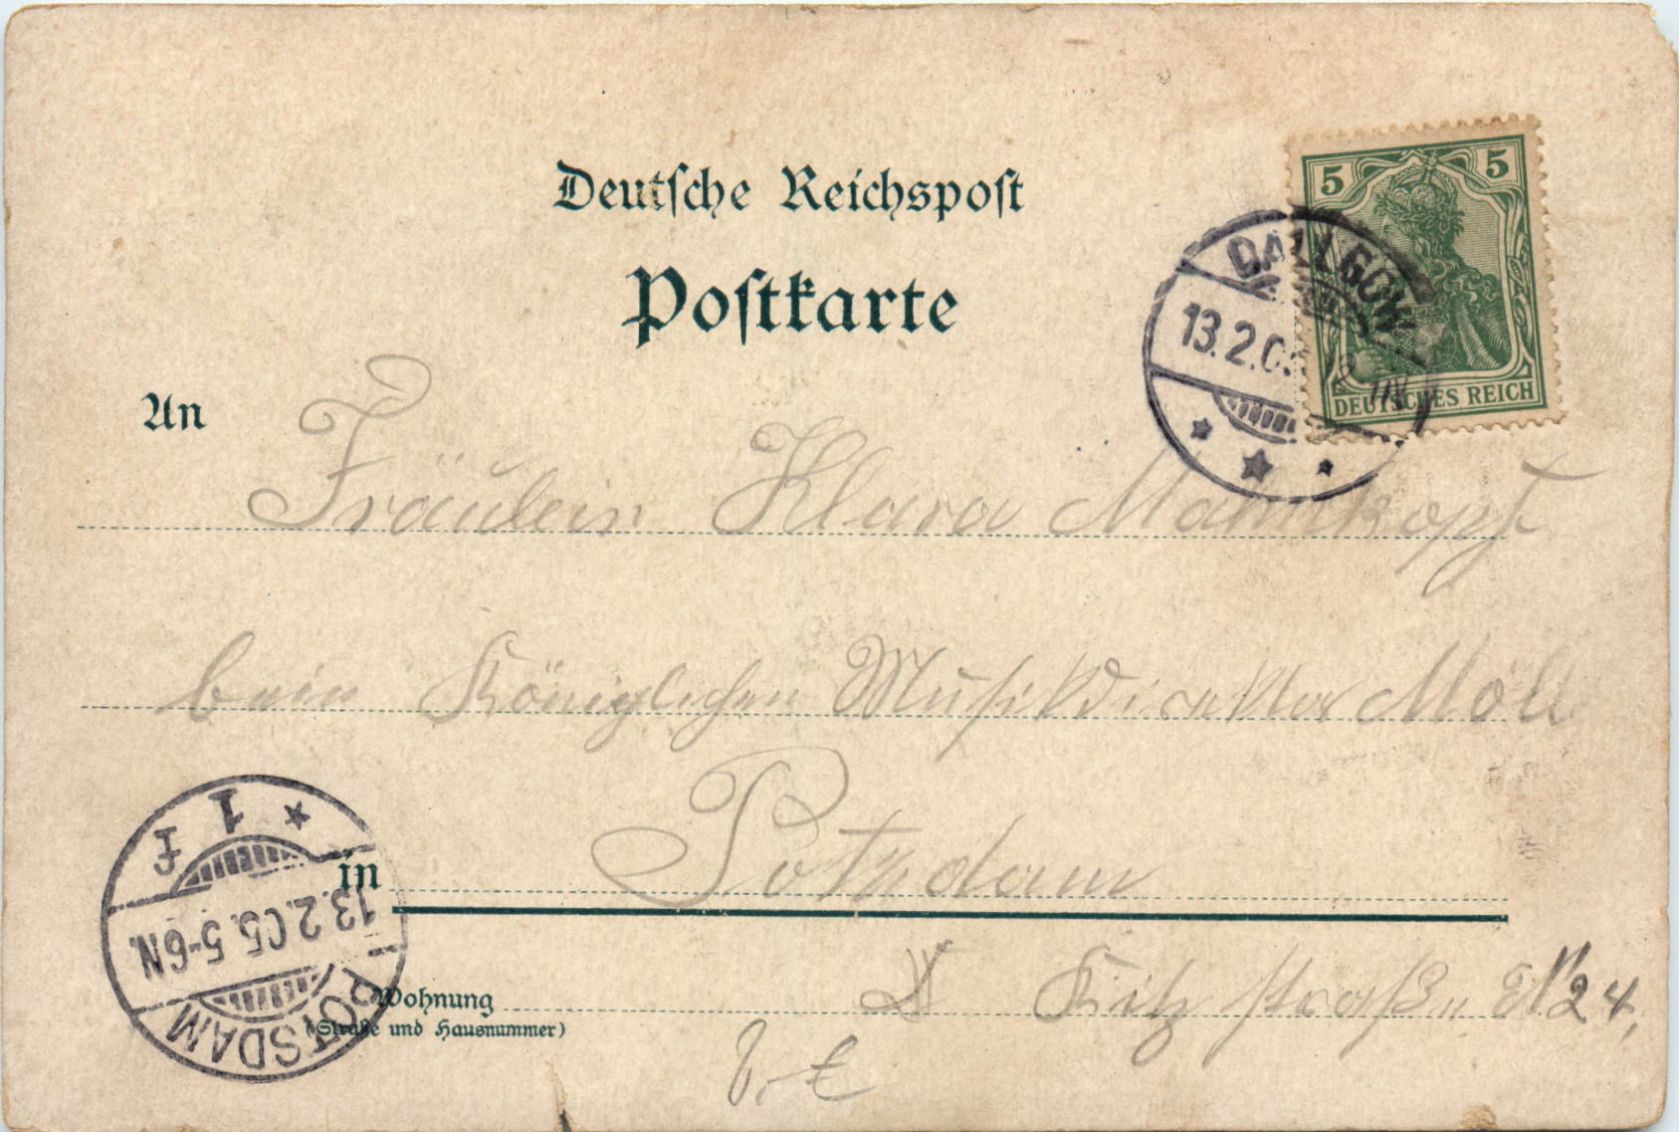 Deutsche Reichspost
Postkarte
5 5
DEUTSCHES REICH
DALLGOW
13.2.05
An
Fräulein Klara Mannkopf
beim Königlichen Musikdirektor Möll
in Potsdam
1 £
13.2.05.5-6N.
POTSDAM
Wohnung
(Straße und Hausnummer)
24